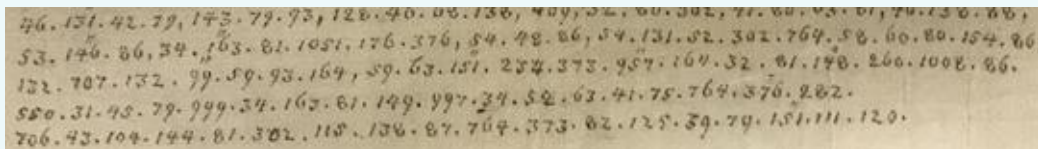 46.131.42.79, 143.79.93, 128.40.08.138, 409, 32.60.302, 41.80.63.81, 40.138.88,
53.146.86, 34.163.81.1051.176.376, 54.48.86, 54.131.52.302.764.58.60.80.154.86
132.707.132.99.59.93.164, 59.63.151.234.373.957.164.32.81.148.260.1008.86.
550.31.45.79.999.34.163.81.149.997.34.54.63.41.75.764.376.282.
706.43.104.144.81.302.115.138.87.764.373.82.125.39.79.151.111.120.